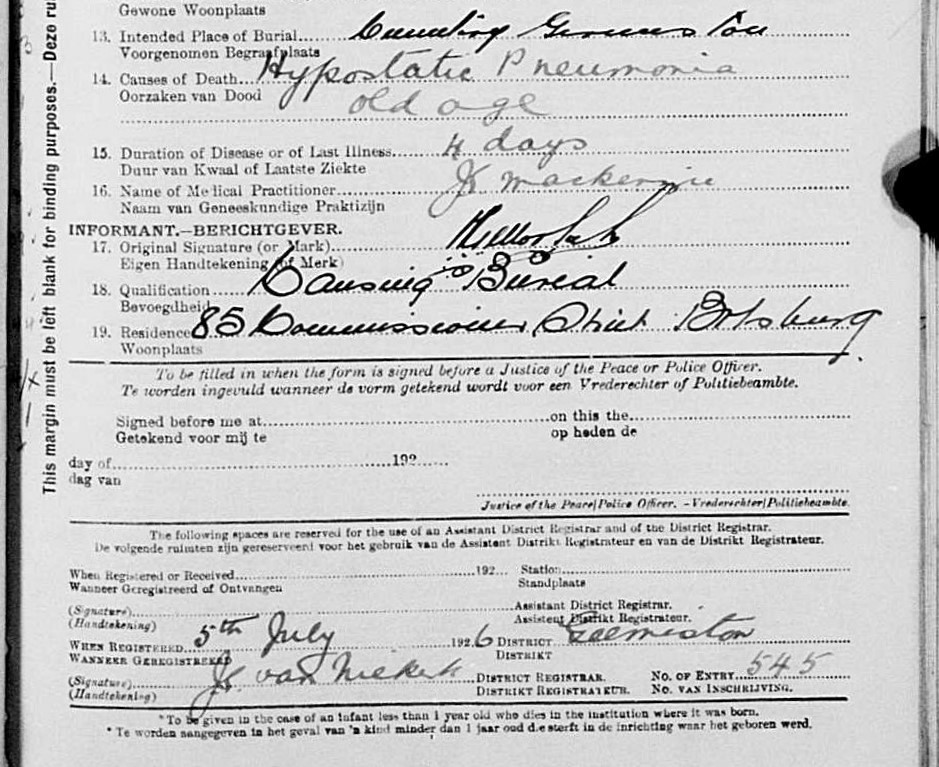 Gewone Woonplaats
13. Intended Place of Burial
Voorgenomen Begraafplaats
14. Causes of Death Hypostatic Pneumonia
Oorzaken van Dood old age
15. Duration of Disease or of Last Illness 4 days
Duur van Kwaal of Laatste Ziekte
16. Name of Medical Practitioner Mackenzie
Naam van Geneeskundige Praktizijn
INFORMANT.—BERICHTGEVER.
17. Original Signature (or Mark)
Eigen Handtekening (of Merk)
18. Qualification Causing Burial
Bevoegdheid
19. Residence 85 Commissioner Street Bobsburg
Woonplaats
To be filled in when the form is signed before a Justice of the Peace or Police Officer.
Te worden ingevuld wanneer de vorm getekend wordt voor een Vrederechter of Politiebeambte.
Signed before me at on this the
Getekend voor mij te op heden de
day of 192
dag van
Justice of the Peace/Police Officer. - Vrederechter/Politiebeambte.
The following spaces are reserved for the use of an Assistant District Registrar and of the District Registrar.
De volgende ruimten zijn gereserveerd voor het gebruik van de Assistent Distrikt Registrateur en van de Distrikt Registrateur.
When Registered or Received 192 Station
Wanneer Geregistreerd of Ontvangen Standplaats
(Signature) Assistant District Registrar.
(Handtekening) Assistent Distrikt Registrateur.
WHEN REGISTERED 5th July 1926 DISTRICT Germiston
WANNEER GEREGISTREERD DISTRIKT
(Signature) van Niekerk DISTRICT REGISTRAR. NO. OF ENTRY 545
(Handtekening) DISTRIKT REGISTRATEUR. NO. VAN INSCHRIJVING.
* To be given in the case of an infant less than 1 year old who dies in the institution where it was born.
* Te worden aangegeven in het geval van 'n kind minder dan 1 jaar oud die sterft in de inrichting waar het geboren werd.
This margin must be left blank for binding purposes.—Deze